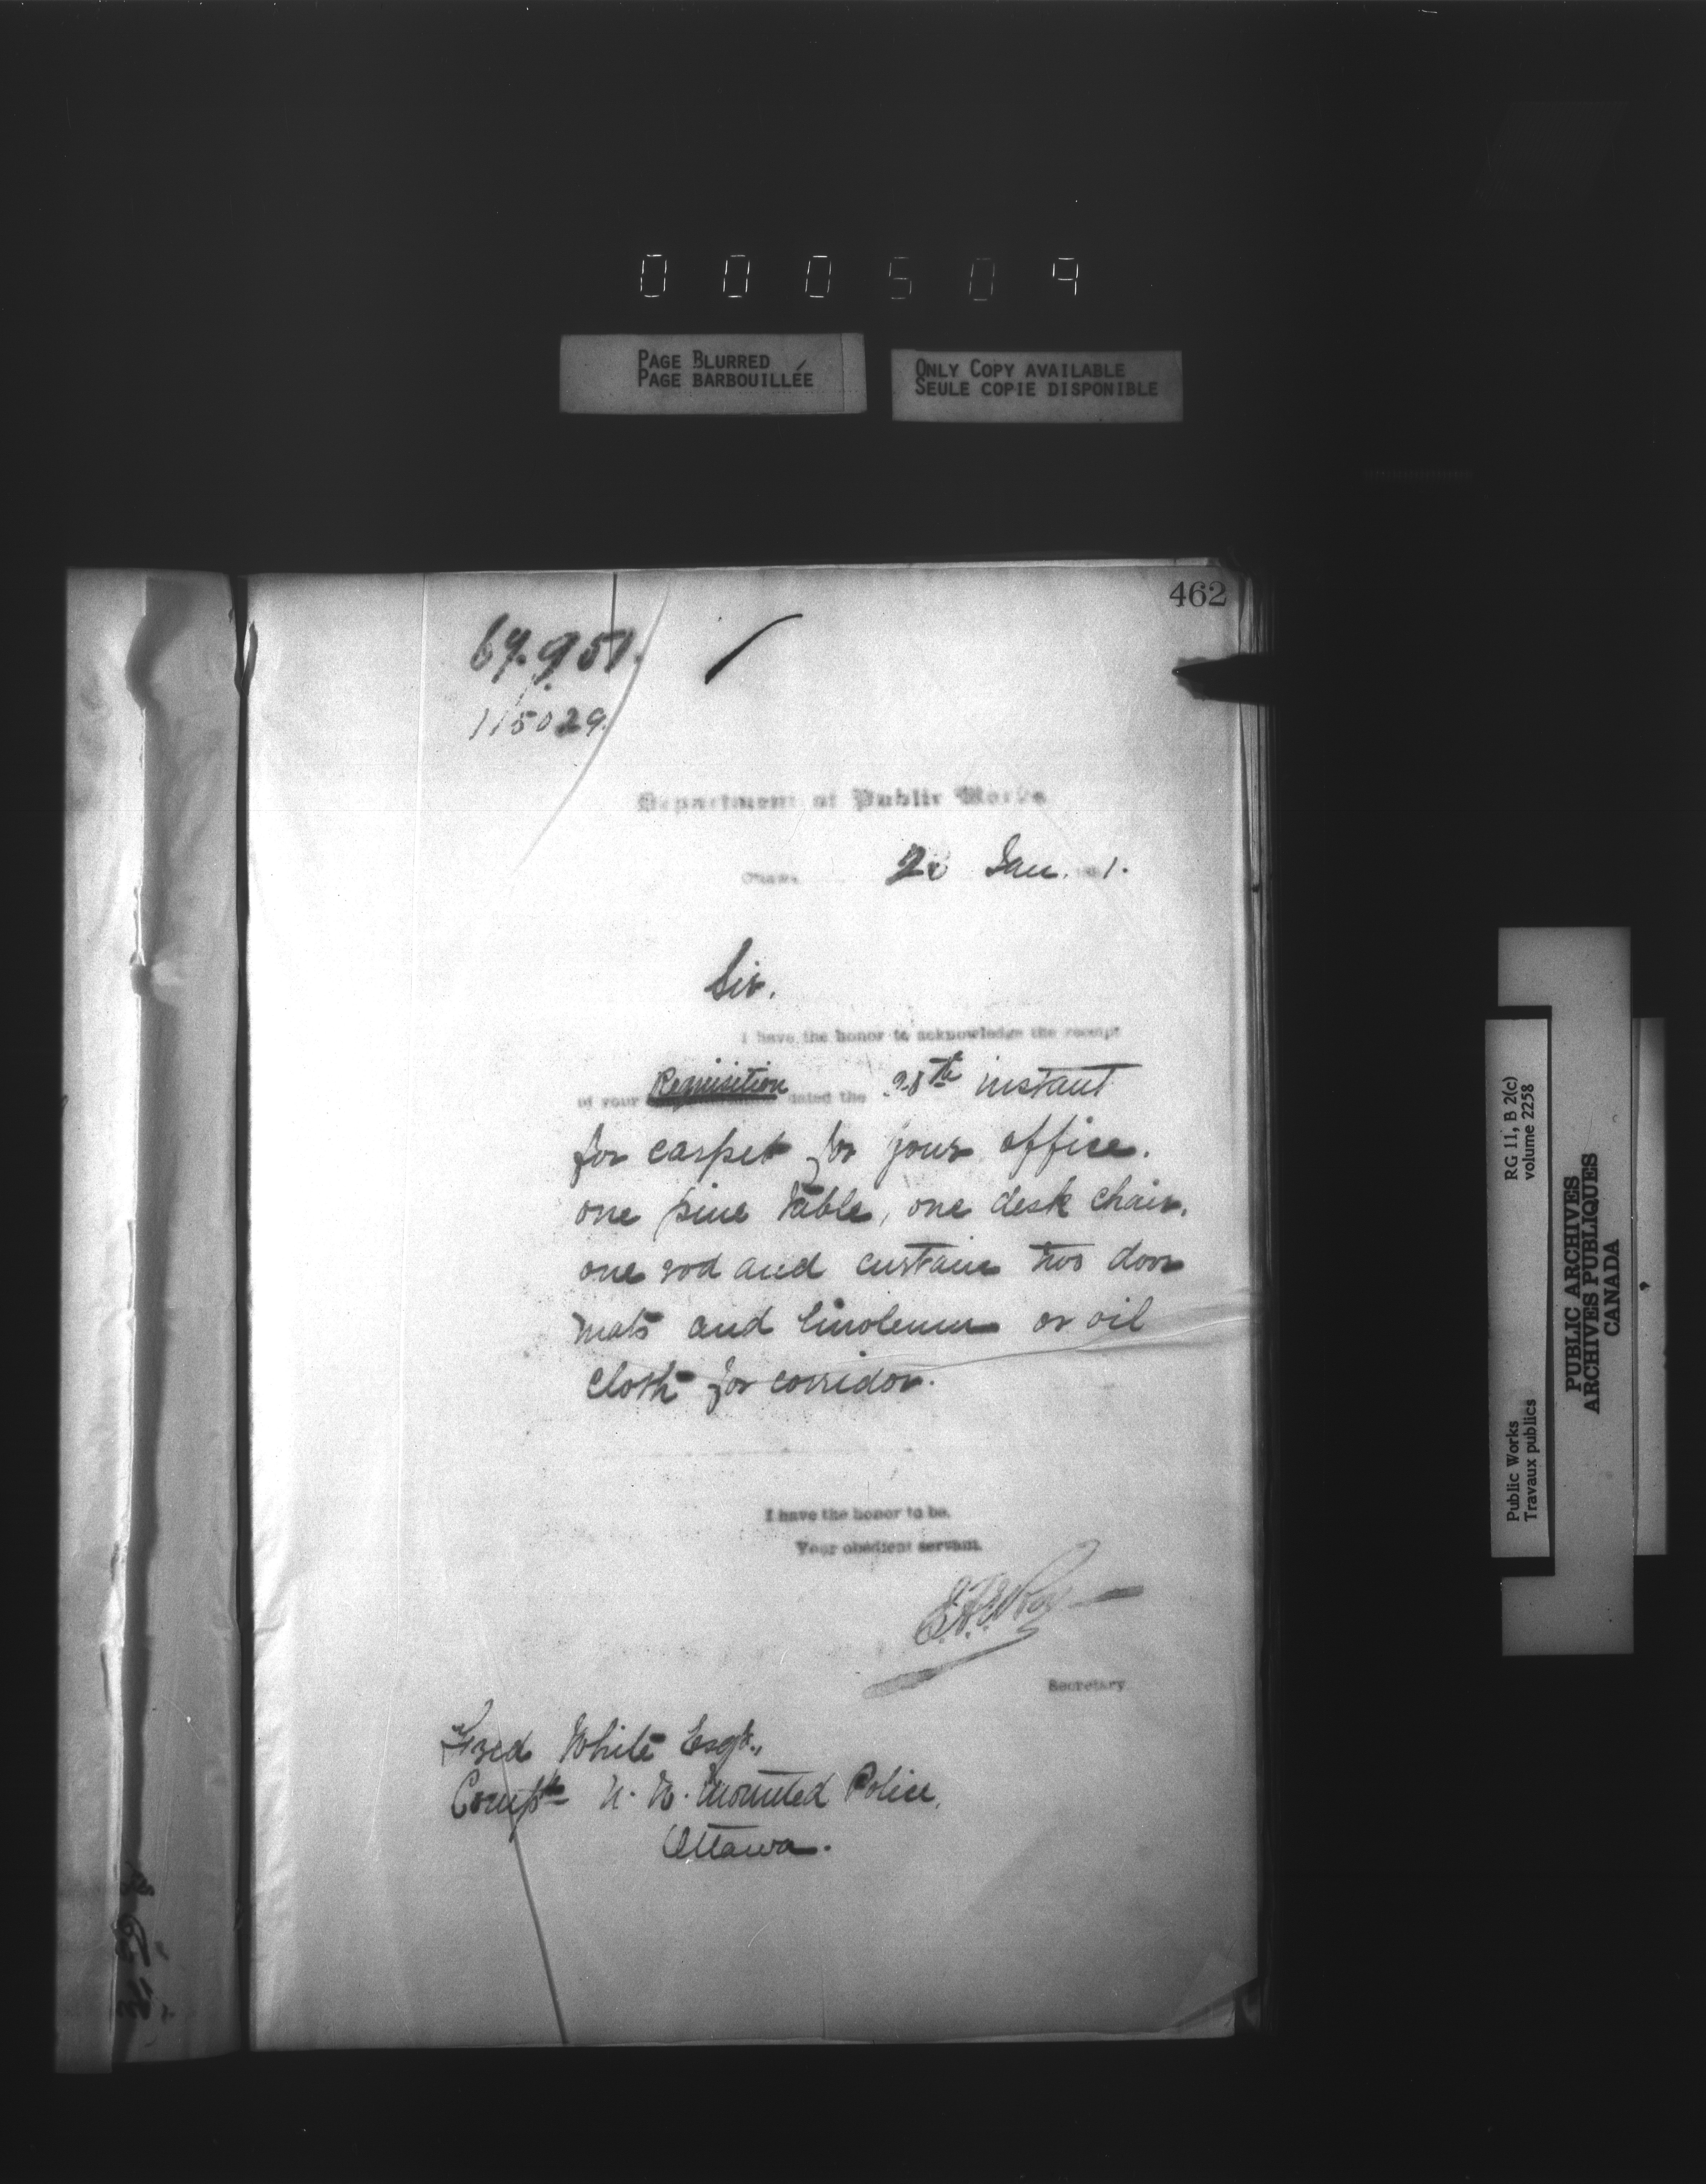 000509
PAGE BLURRED
PAGE BARBOUILLÉE
ONLY COPY AVAILABLE
SEULE COPIE DISPONIBLE
462
115029.
Department of Public Works
Ottawa Jan. 1.
Sir.
I have the honor to acknowledge the receipt
of your Requisition dated the 28th instant
for carpet for your office.
one pine table, one desk chair.
one rod and curtain two door
mats and linoleum or oil
cloth for corridor.
I have the honor to be,
Your obedient servant.
Secretary
Fred White Esqr.,
Compt N. W. Mounted Police,
Ottawa.
RG 11, B 2(c)
volume 2258
Public Works
Travaux publics
PUBLIC ARCHIVES
ARCHIVES PUBLIQUES
CANADA